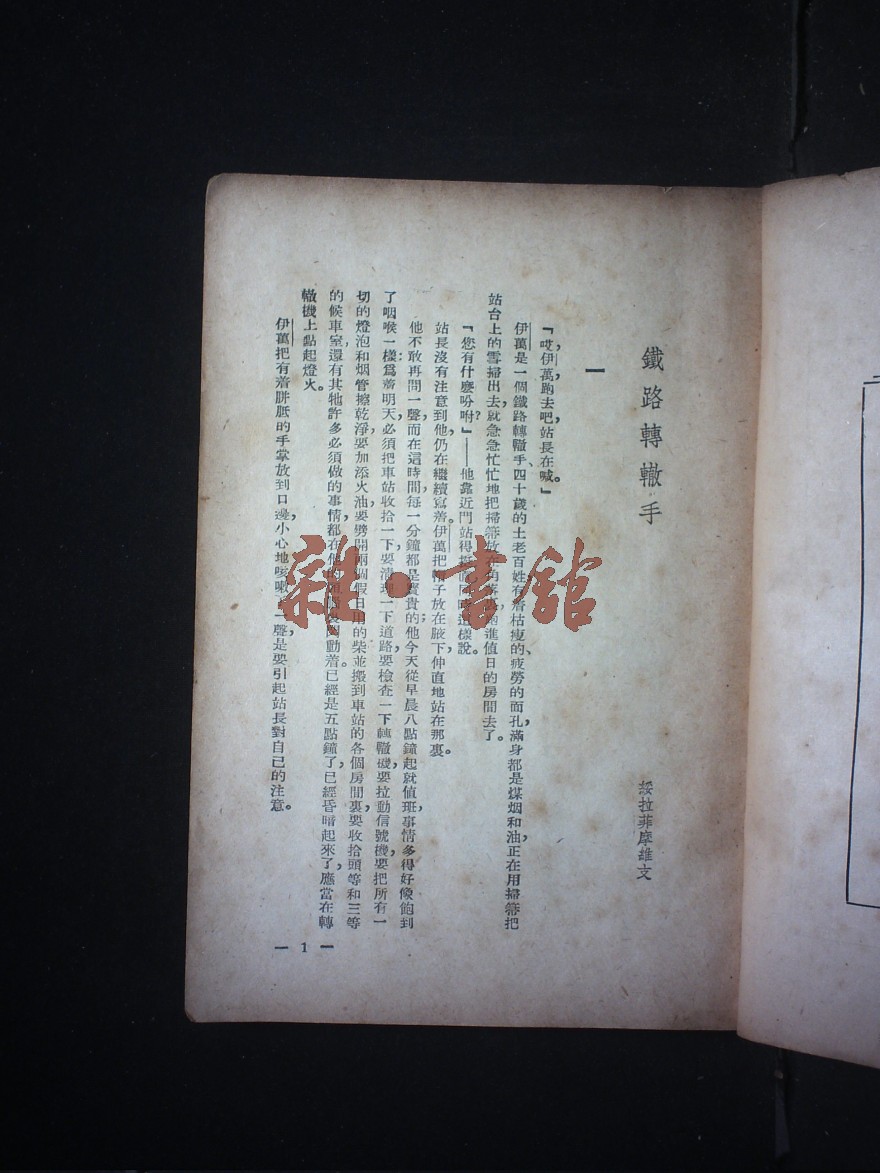 鐵路轉轍手
綏拉菲摩維文
一
『哎，伊萬，跑去吧，站長在喊。』
伊萬是一個鐵路轉轍手，四十歲的土老百姓，有着枯瘦的、疲勞的面孔，滿身都是煤烟和油，正在用掃箒把
站台上的雪掃出去，就急急忙忙地把掃箒放在角落，跑進值日的房間去了。
『您有什麽吩咐？』——他靠近門站得同時這樣說。
站長沒有注意到他，仍在繼續寫着。伊萬把帽子放在腋下，伸直地站在那裏。
他不敢再問一聲，而在這時間，每一分鐘都是寶貴的，他今天從早晨八點鐘起就值班，事情多得好像飽到
了咽喉一樣：爲着明天，必須把車站收拾一下，要清理一下道路，要檢查一下轉轍機，要拉動信號機，要把所有一
切的燈泡和烟管擦乾淨，要加添火油，要劈開兩個假日用的柴，並搬到車站的各個房間裏，要收拾頭等和三等
的候車室，還有其牠許多必須做的事情，都在他的動着。已經是五點鐘了，已經昏暗起來了，應當在轉
轍機上點起燈火。
伊萬把有着胼胝的手掌放到口邊，小心地咳嗽一聲，是要引起站長對自己的注意。
— 1 —
雜·書館